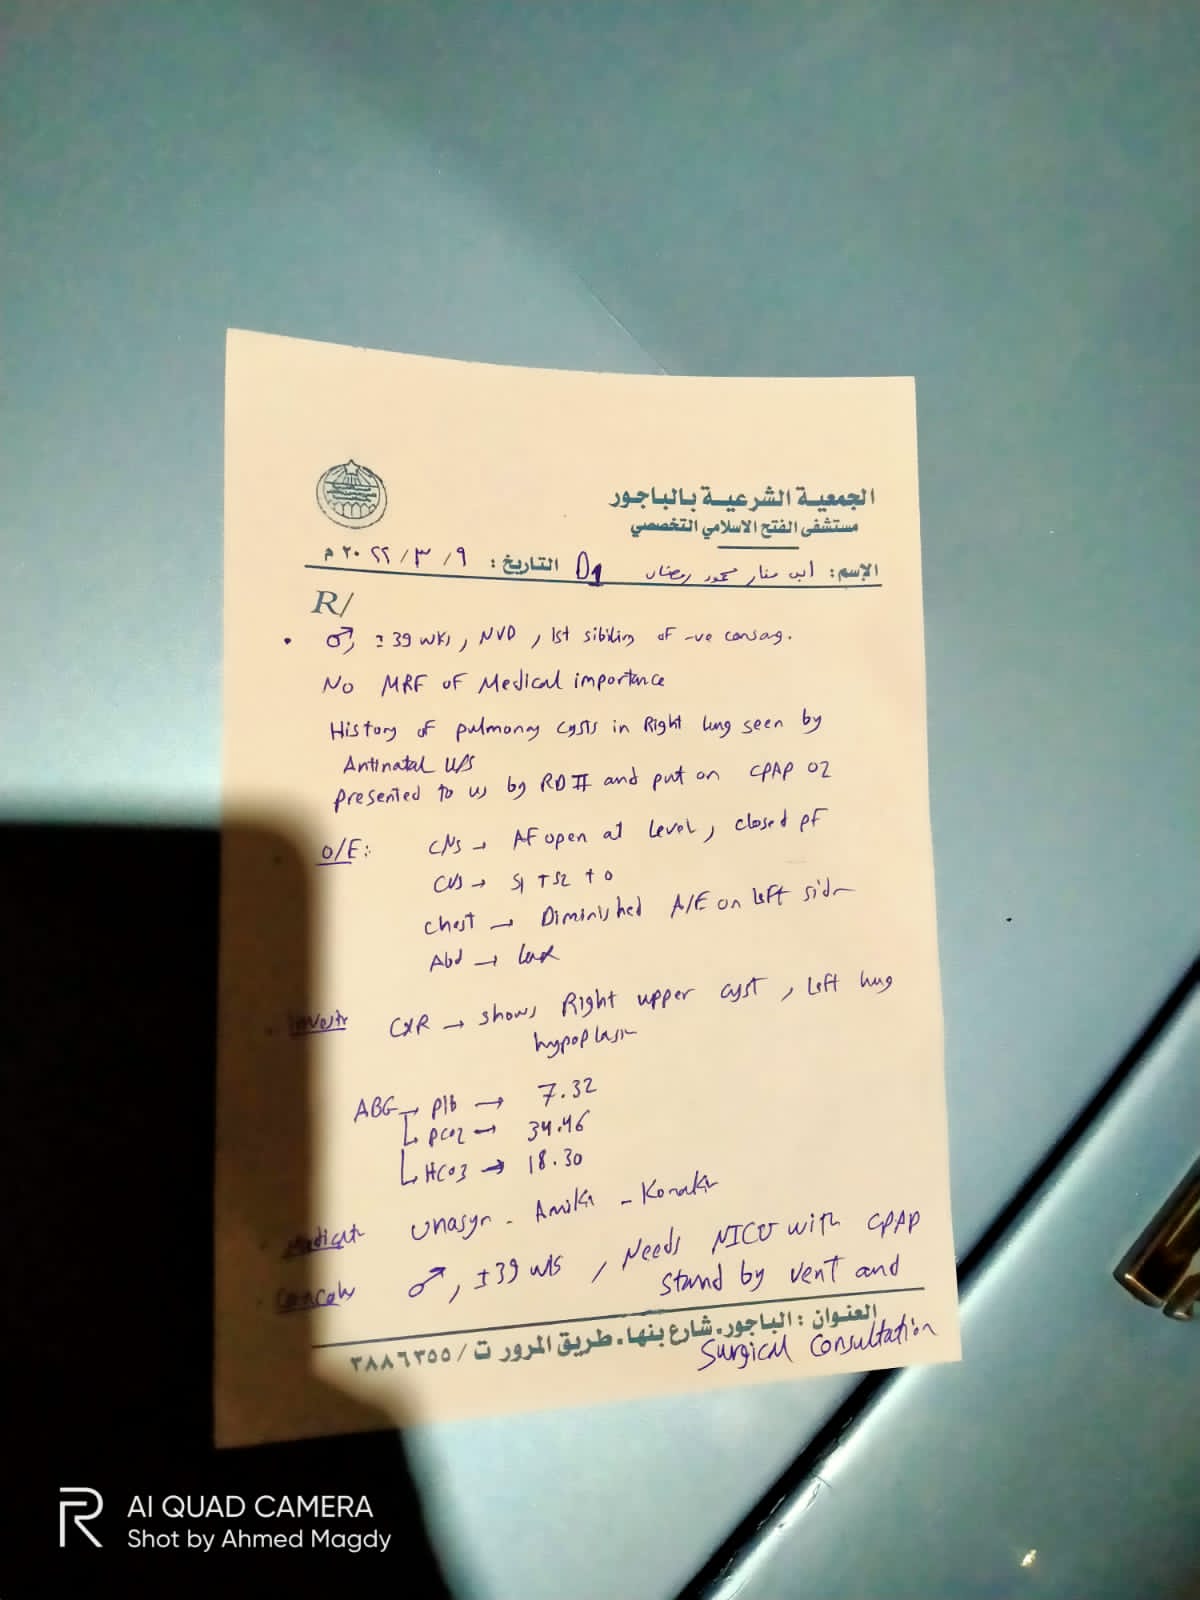 الجمعية الشرعية بالباجور
مستشفى الفتح الاسلامي التخصصي
الإسم: ابن منار محمود رمضان D1 التاريخ: ٩ / ٣ / ٢٠٢٢ م
R/
• ♂, ± 39 wks, NVD, 1st sibiling of -ve consag.
No MRF of Medical importance
History of pulmonary cysts in Right lung seen by
Antinatal U/S
presented to us by RD II and put on CPAP O2
O/E: CNS → AF open at level, closed PF
CVS → S1 + S2 + 0
Chest → Diminished A/E on left side
Abd → lax
CXR → shows Right upper cyst, Left lung
hypoplasia
ABG → PH → 7.32
PCO2 → 34.46
HCO3 → 18.30
Unasyn - Amika - Konakion
♂, ±39 wks, Needs NICU with CPAP
stand by vent and
Surgical Consultation
العنوان : الباجور. شارع بنها. طريق المرور ت / ٣٨٨٦٣٥٥
R AI QUAD CAMERA
Shot by Ahmed Magdy